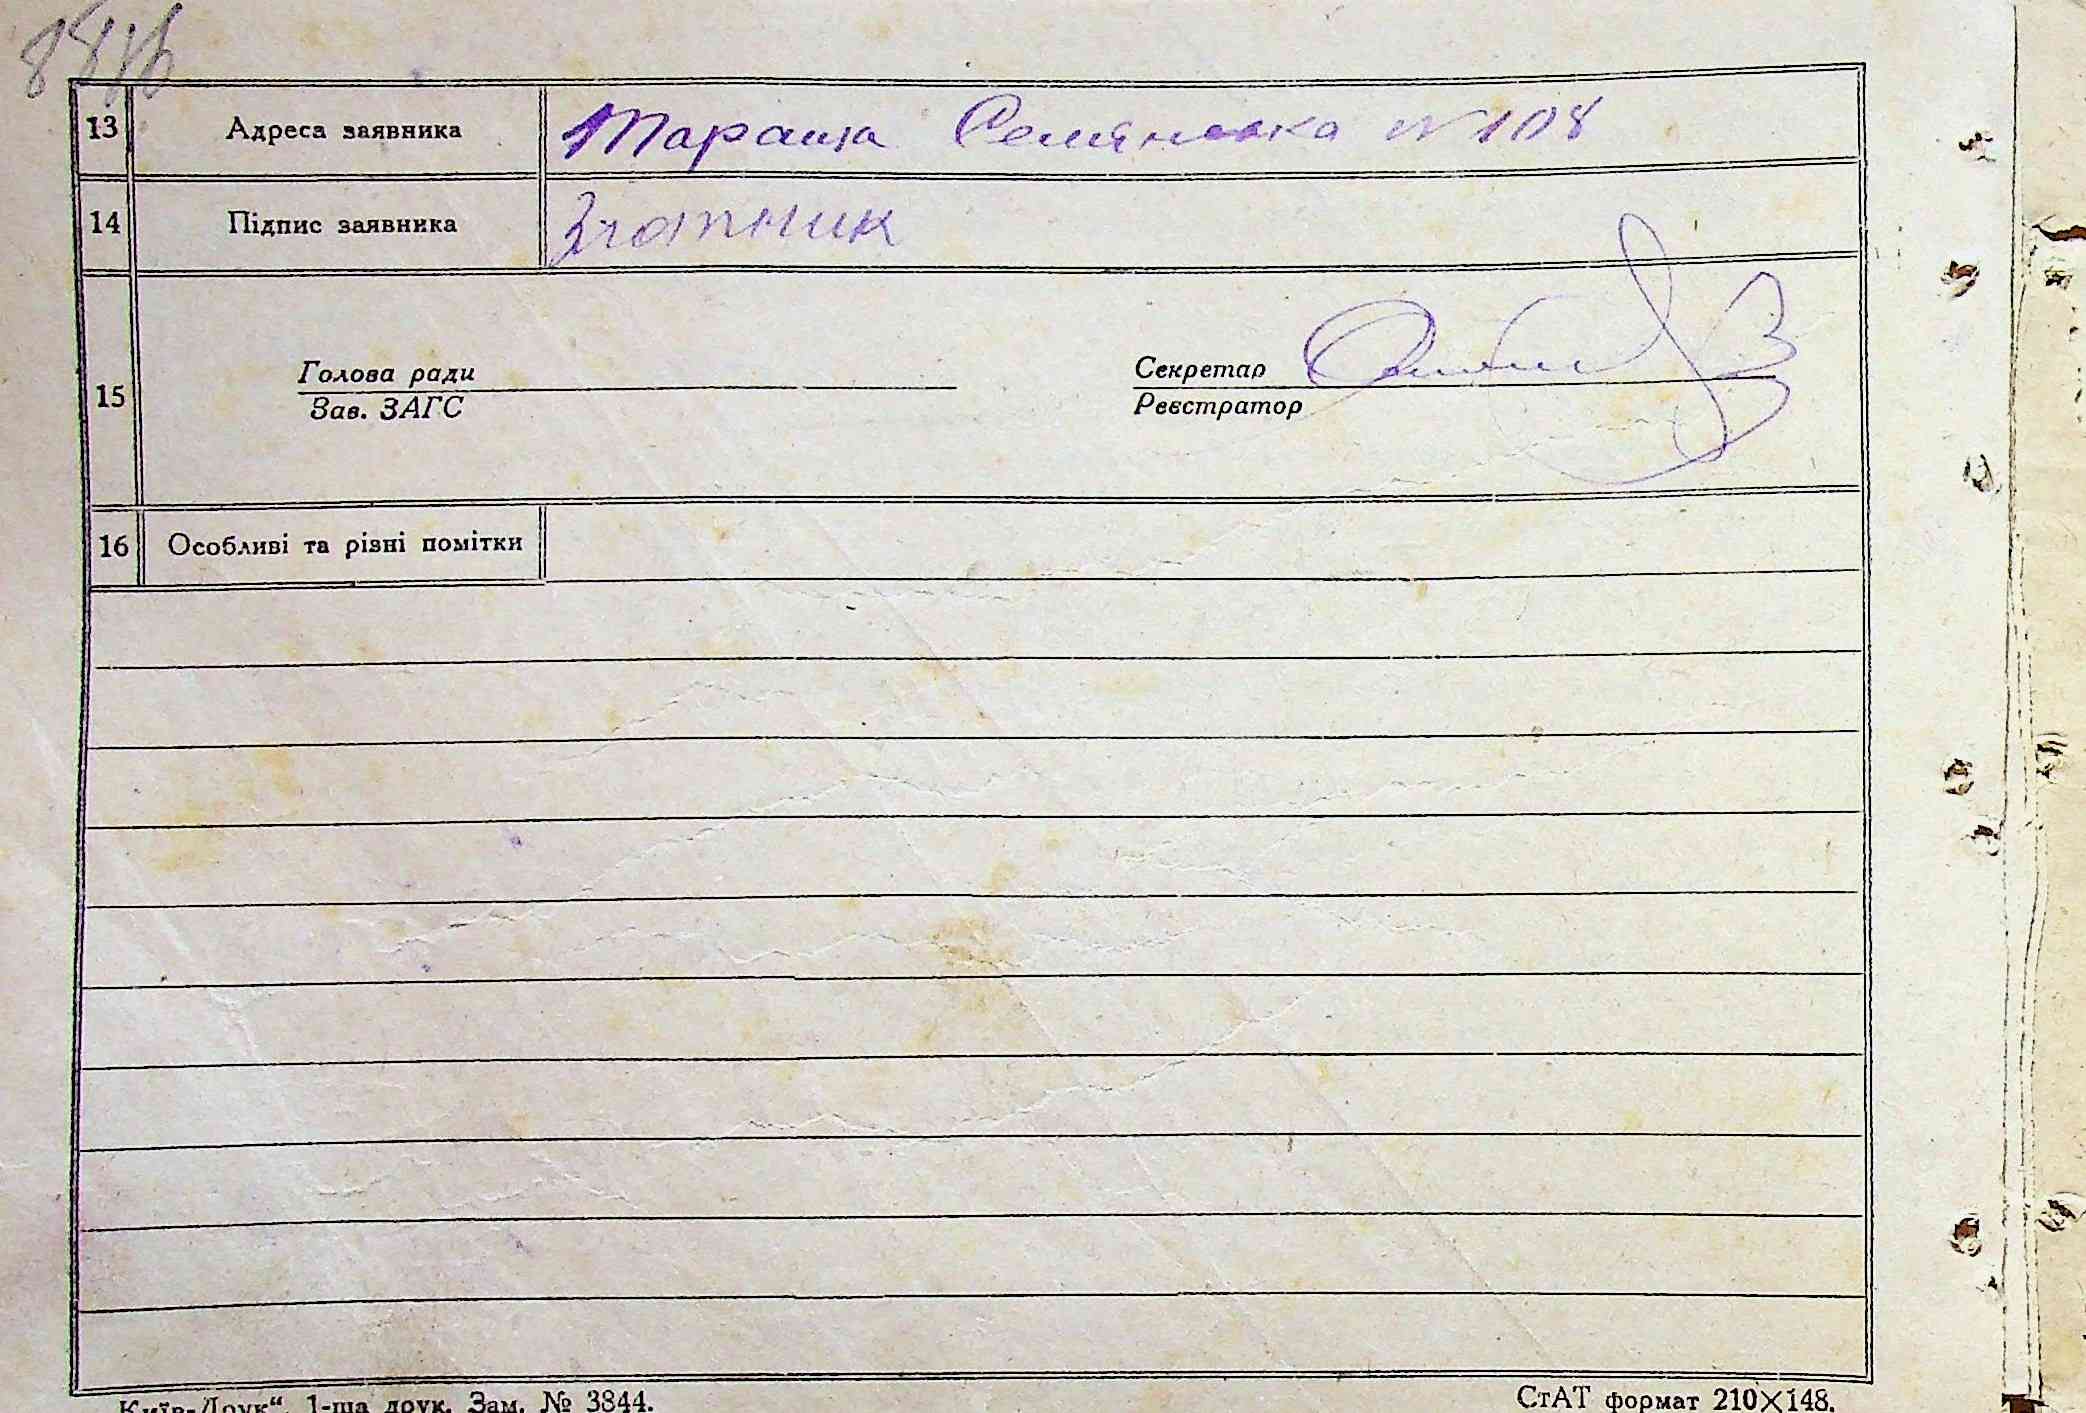 13 Адреса заявника Тараща Селянська № 108
14 Підпис заявника Злотник
15
Голова ради
Зав. ЗАГС
Секретар
Реєстратор
16 Особливі та різні помітки
Київ-Друк“, 1-ша друк. Зам. № 3844.
СтАТ формат 210×148.